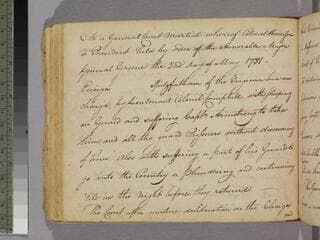 At a General Court Martial whereof Colonel Harrison
is President held by order of the Honorable Major
General Greene the 22d Day of May 1781 -
Ensign Spitfathom of the Virginia line was
charged by Lieutenant Colonel Campbell with sleeping
on Guard and suffering Capt. Armstrong to take
him and all the Prisoners without discovery
of him. Also with suffering a part of his Guard to
go into the Country a plundering and continuing
till in the Night before they returned
The Court after mature deliberation on the Charges
and